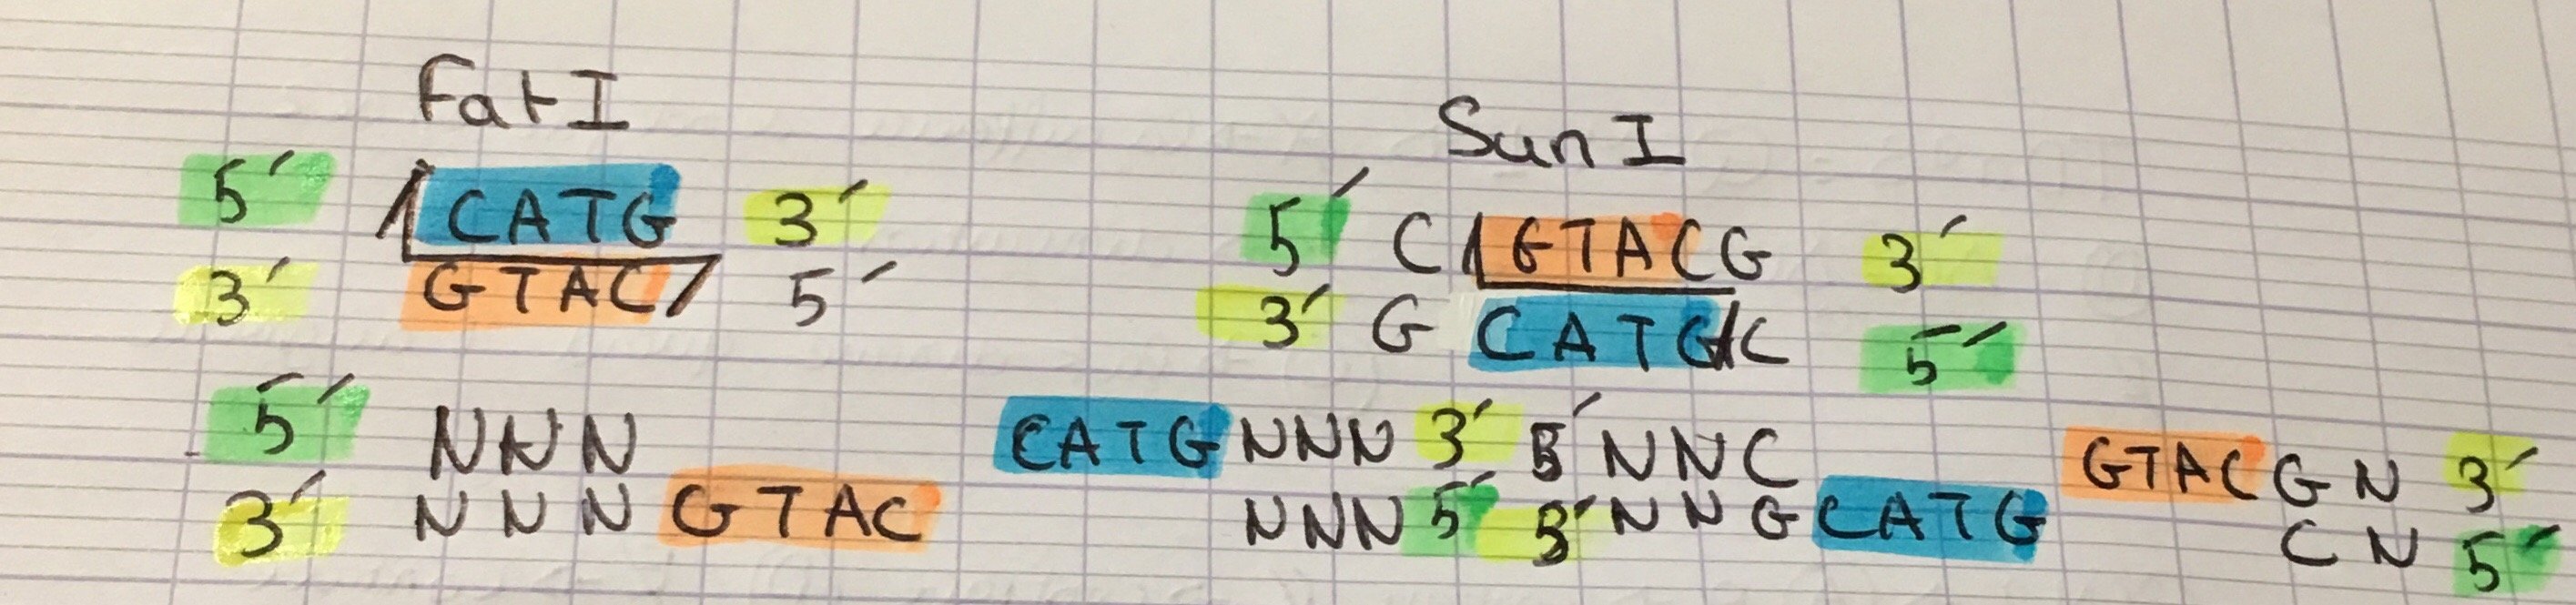 FatI
SunI
5' /CATG 3'
3' GTAC/ 5'
5' C/GTACG 3'
3' G CATG/C 5'
5' NNN CATGNNN 3'
3' NNNGTAC NNN 5'
5' NNC GTACGN 3'
3' NNGCATG CN 5'